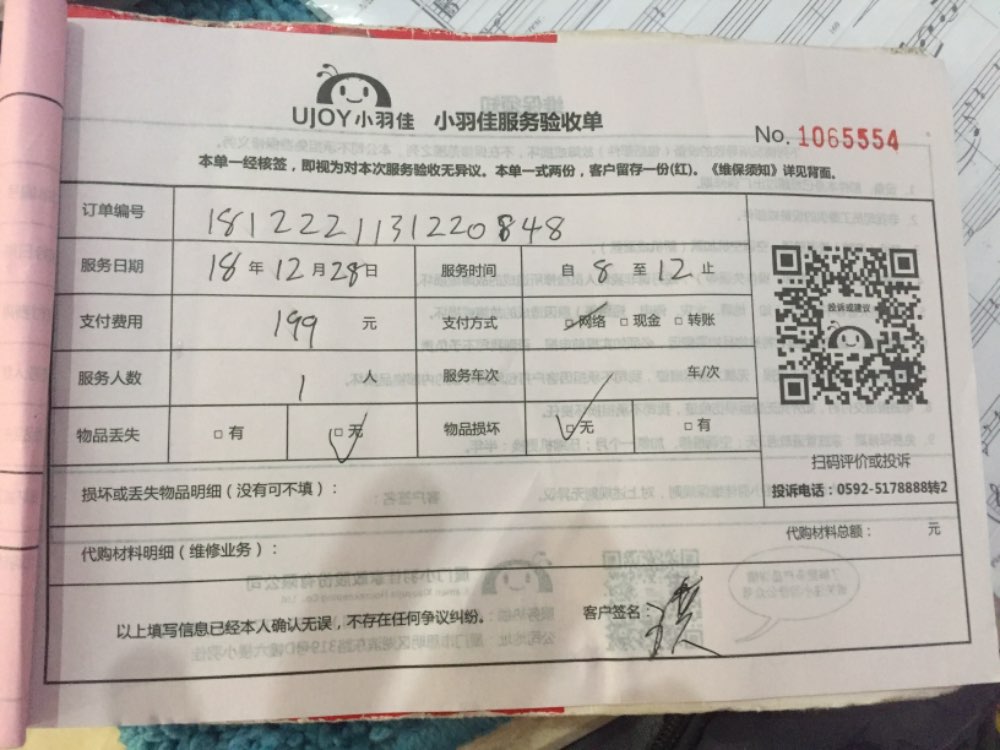 UJOY小羽佳 小羽佳服务验收单
No. 1065554
本单一经核签，即视为对本次服务验收无异议。本单一式两份，客户留存一份(红)。《维保须知》详见背面。
订单编号 181222113122084 8
服务日期 18 年 12 月 28 日 服务时间 自 8 至 12 止
支付费用 199 元 支付方式 □网络 □现金 □转账
服务人数 1 人 服务车次 车/次
物品丢失 □有 □无 物品损坏 □无 □有
投诉或建议
扫码评价或投诉
投诉电话：0592-5178888转2
损坏或丢失物品明细（没有可不填）：
代购材料明细（维修业务）： 代购材料总额： 元
以上填写信息已经本人确认无误，不存在任何争议纠纷。 客户签名：